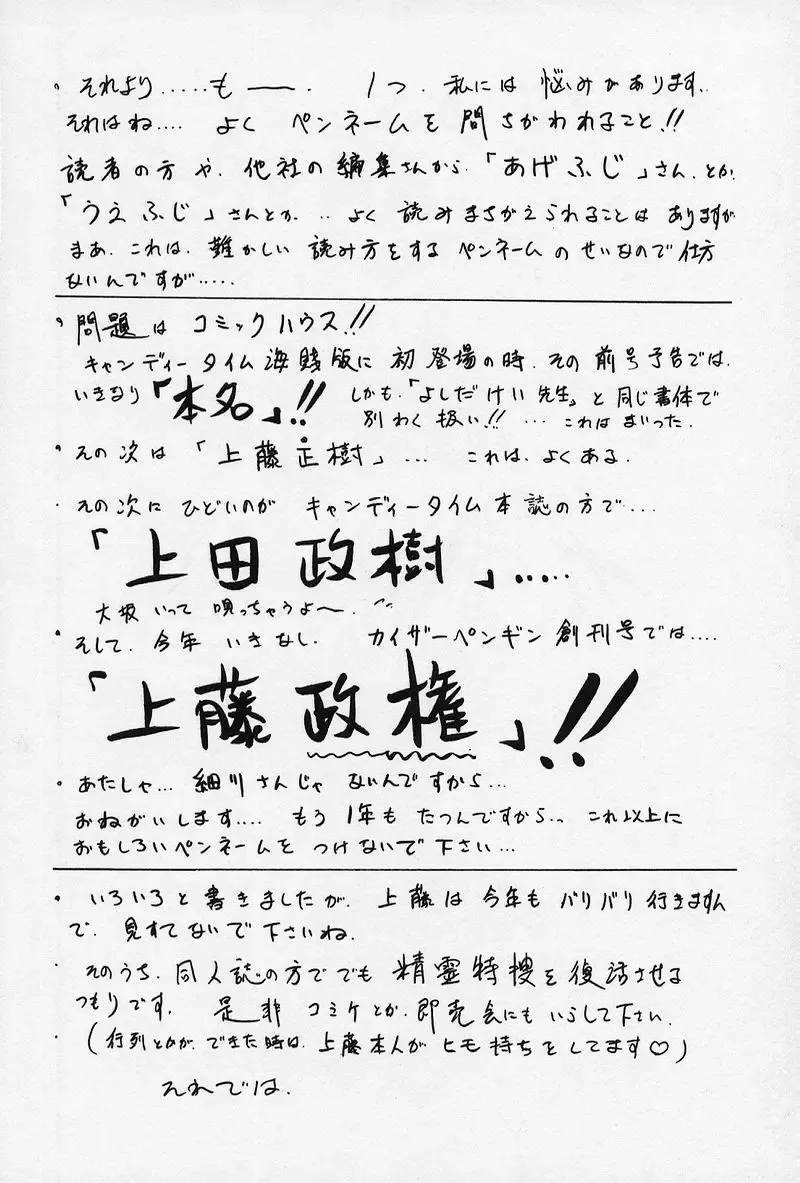 ・それより.....も――. 1つ. 私には 悩みがあります.
それはね.... よく ペンネームを 間ちがわれること!!
読者の方や、他社の編集さんから.「あげふじ」さん. とか.
「うえふじ」さんとか... よく 読みまちがえられることは ありますが
まあ. これは. 難かしい 読み方をする ペンネームのせいなので仕方
ないんですが.....
・問題は コミックハウス!!
キャンディータイム海賊版に 初登場の時. その前号予告では.
いきなり「本名」!! しかも.「よしだけい先生」と同じ書体で
別わく扱い!! ... これはまいった.
・その次は 「上藤正樹」... これは、よくある.
・その次に ひどいのが キャンディータイム本誌の方で...
「上田政樹」.....
大坂 いって 唄っちゃうよ～.
・そして. 今年 いきなし. カイザーペンギン創刊号では....
「上藤政権」!!
・あたしゃ... 細川さんじゃ ないんですから...
おねがいします.... もう 1年も たつんですから.. これ以上に
おもしろいペンネームを つけないで下さい...
・いろいろと書きましたが. 上藤は 今年も バリバリ行きますん
で. 見すてないで下さいね.
・そのうち. 同人誌の方ででも 精霊特捜を復活させる
つもりです. 是非 コミケとか. 即売会にもいらして下さい.
・(行列とかが. できた時は. 上藤本人が ヒモ持ちをしてます♡)
それでは.